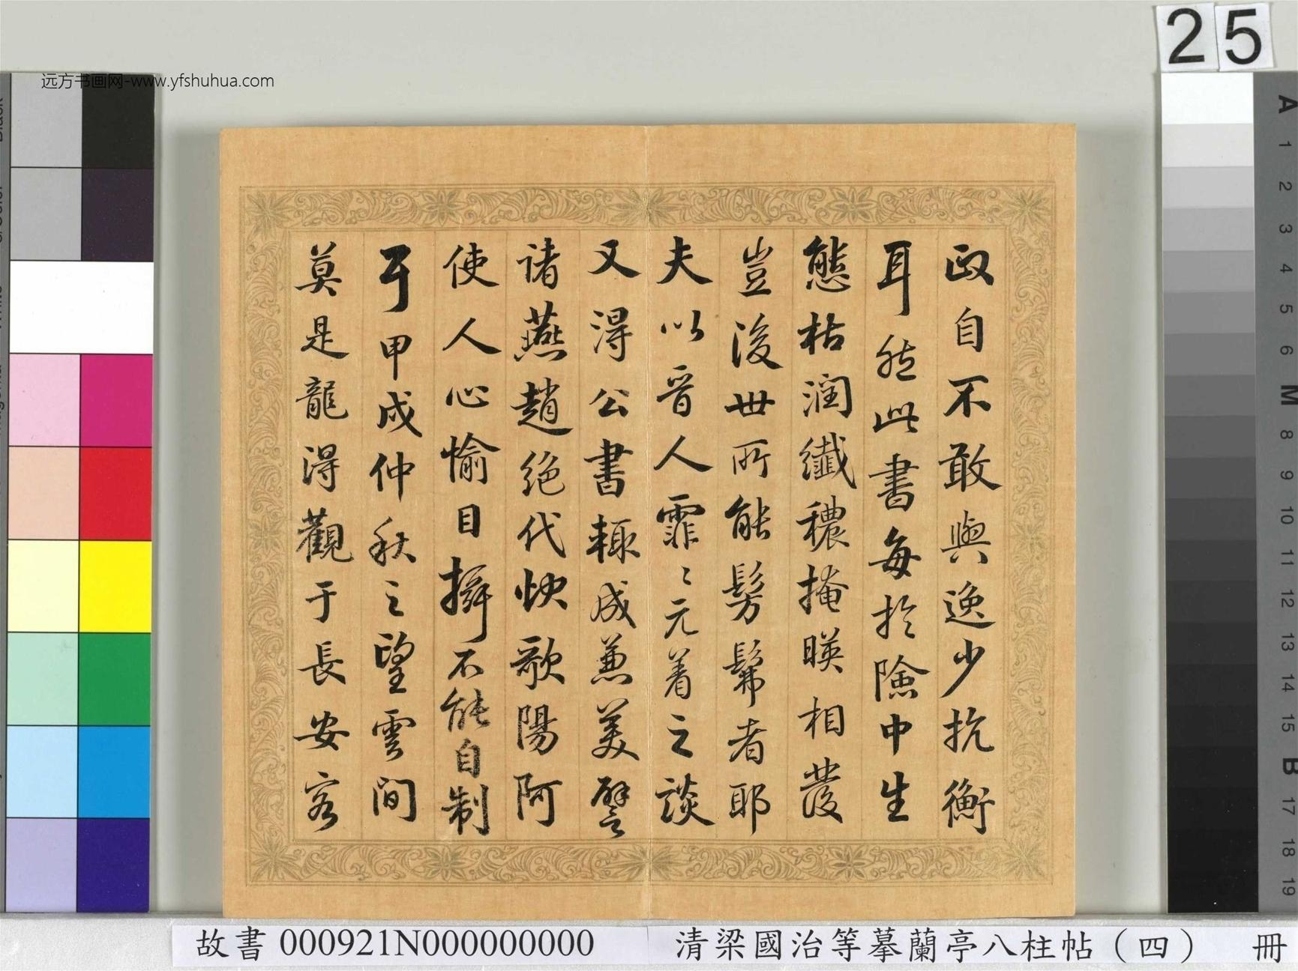 远方书画网-www.yfshuhua.com
25
政自不敢與逸少抗衡
耳然此書每於險中生
態枯润纖穠掩暎相發
豈後世所能髣髴者耶
夫以晋人霏〻元着之談
又得公書輙成兼美譬
诸燕趙绝代快歌陽阿
使人心愉目 不能自制
于甲戌仲秋之望雲间
莫是龍得觀于長安客
故書 000921N000000000 清梁國治等摹蘭亭八柱帖（四） 冊
A 1 2 3 4 5 6 M 8 9 10 11 12 13 14 15 B 17 18 19